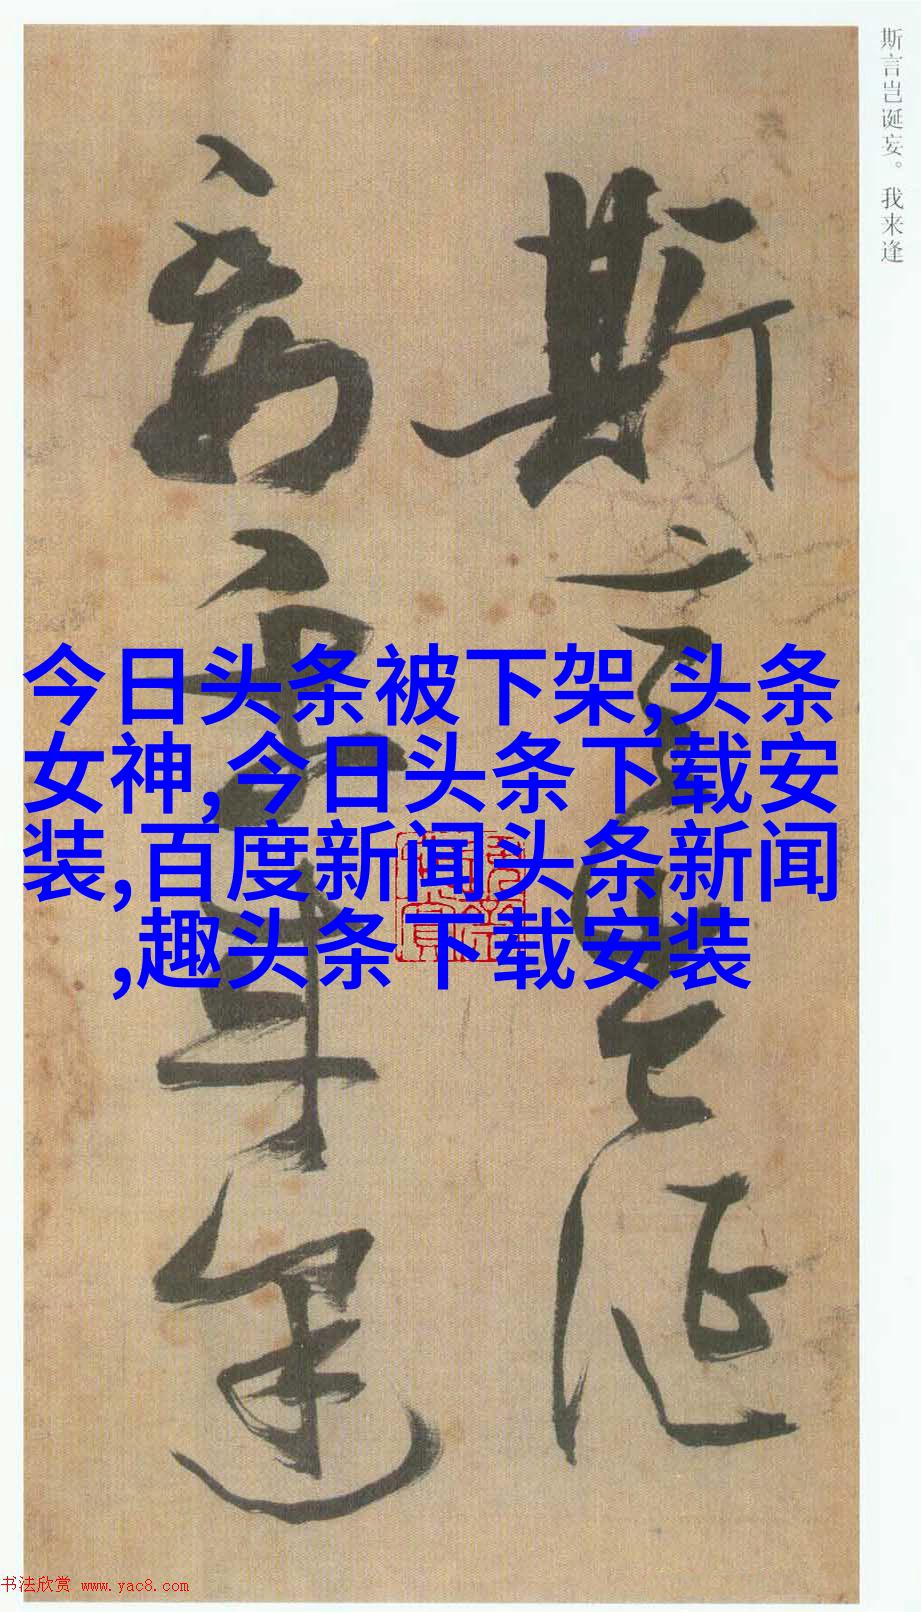 斯言岂诞妄。我来逢
斯言岂诞
妄我来逢
今日头条被下架,头条
女神,今日头条下载安
装,百度新闻头条新闻
,趣头条下载安装
书法欣赏 www.yac8.com